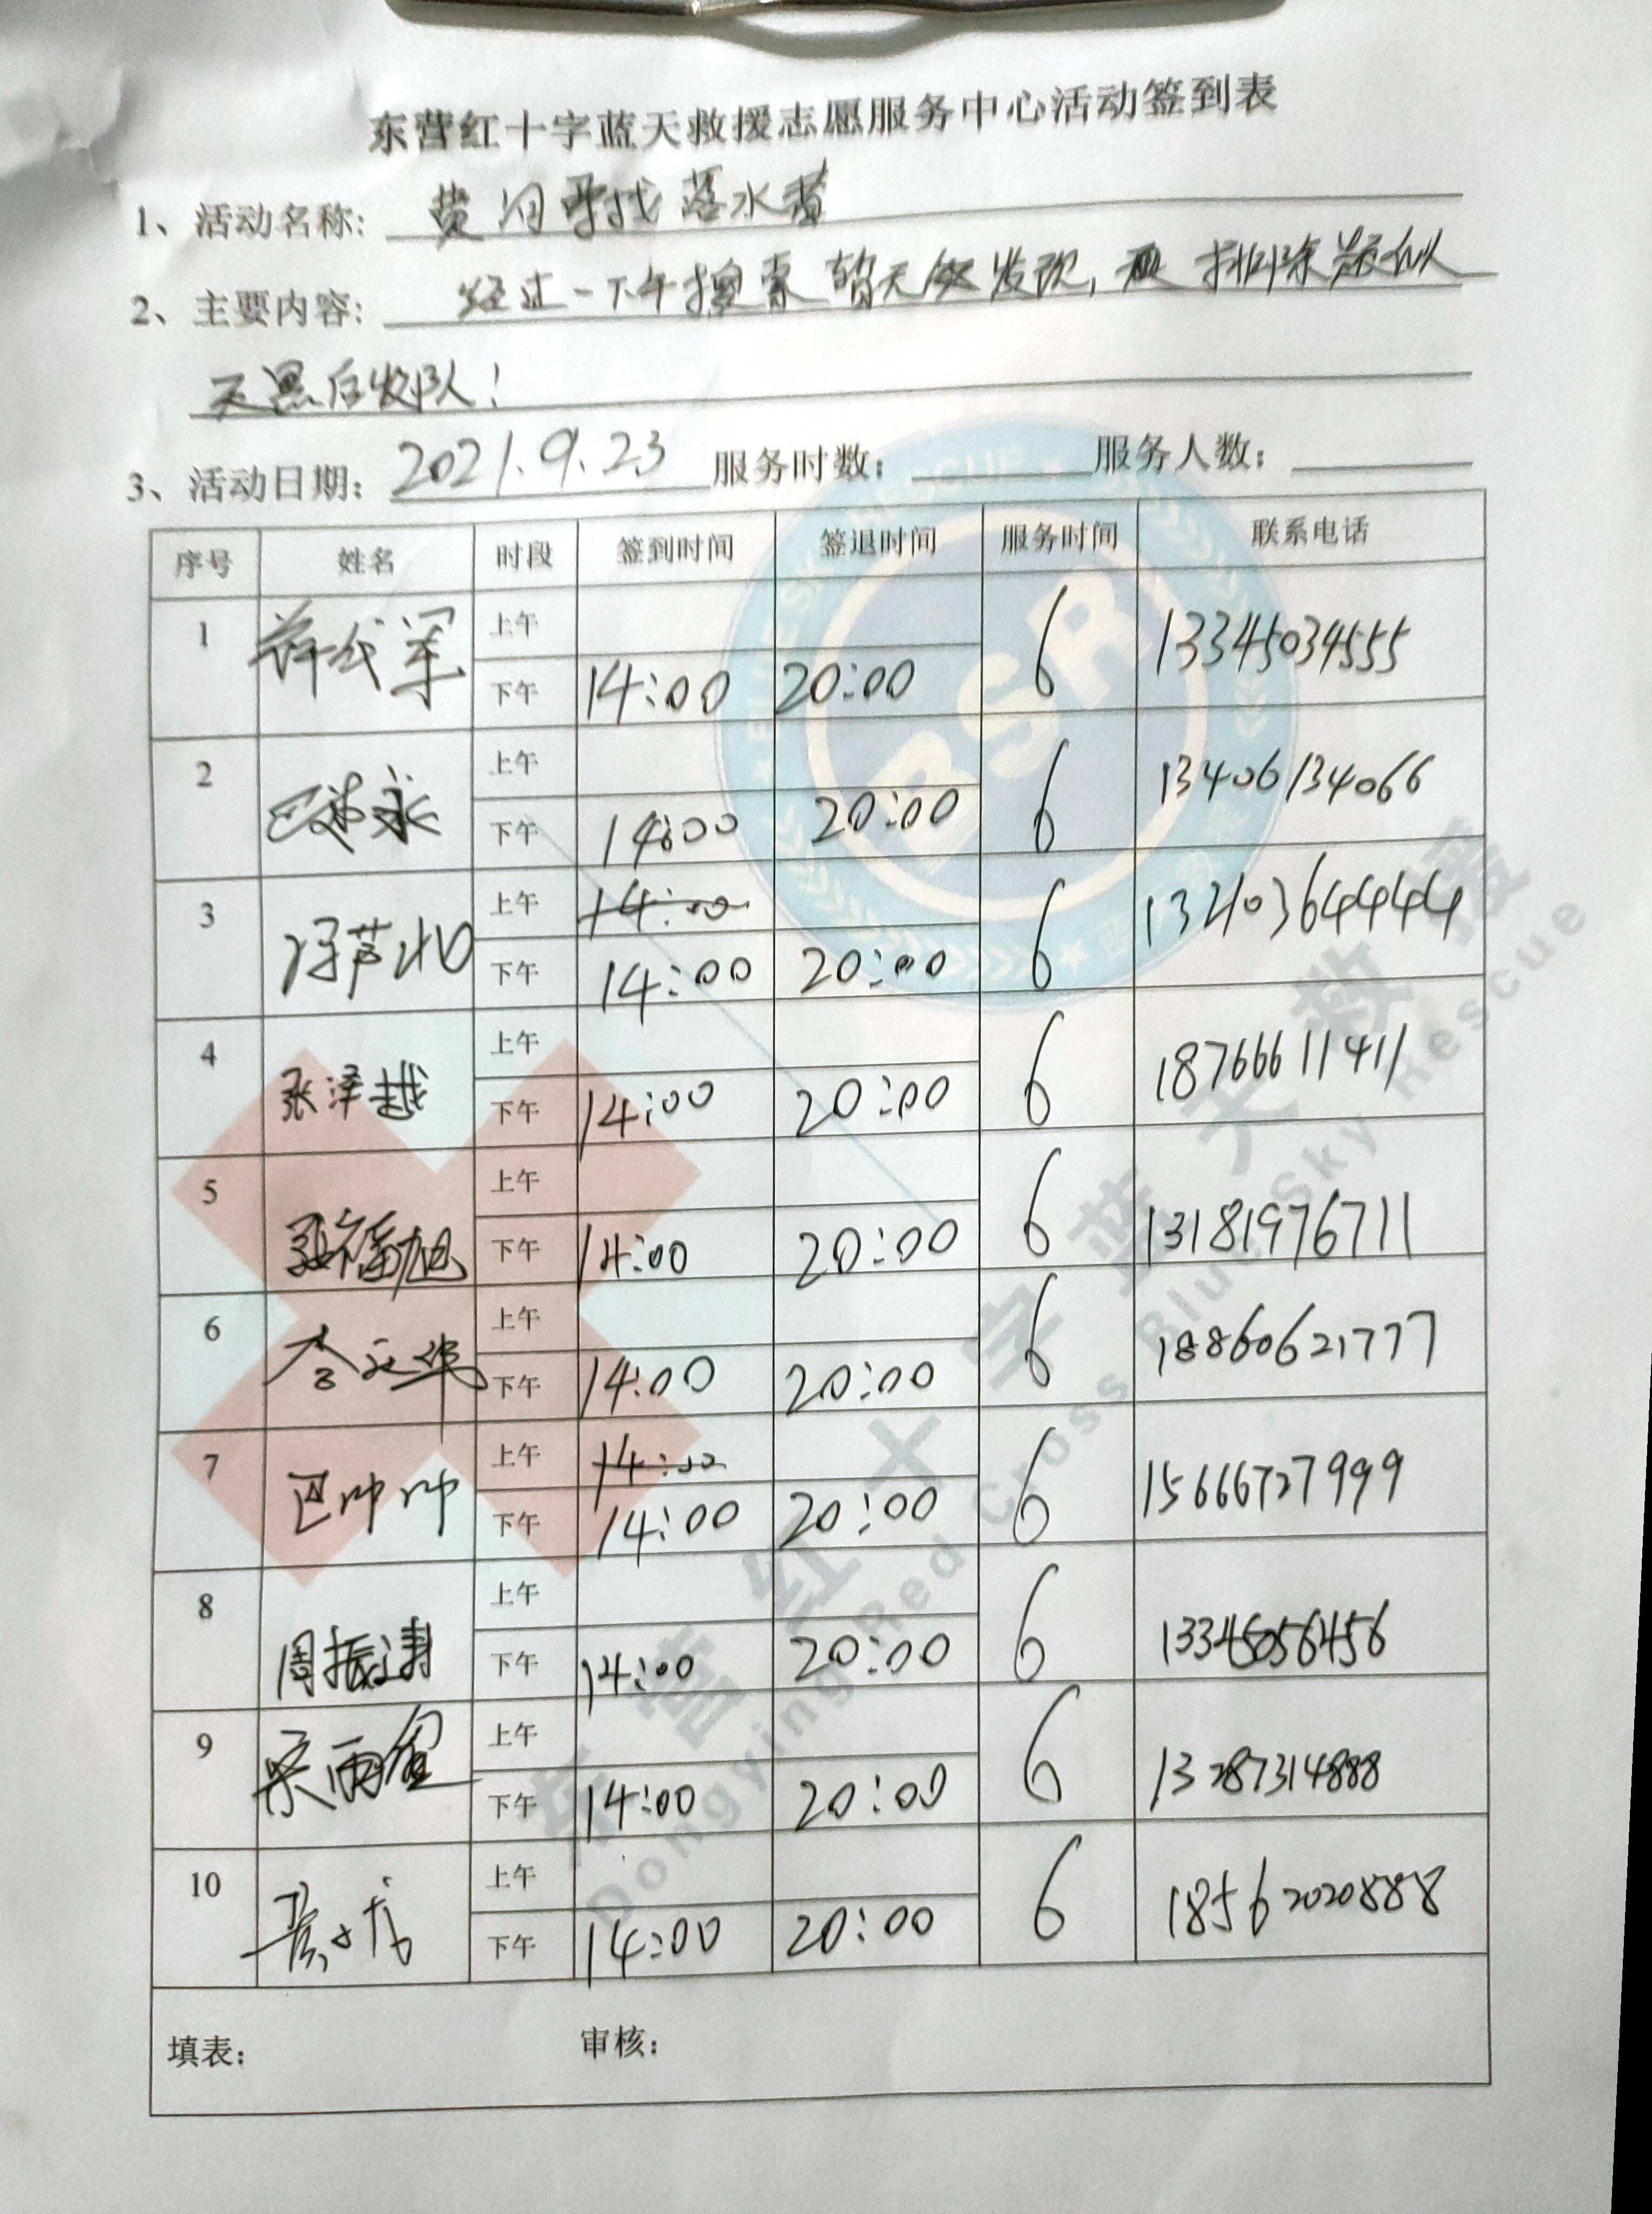 东营红十字蓝天救援志愿服务中心活动签到表
1、活动名称: 黄河寻找落水者
2、主要内容: 经过一下午搜索暂无 发现, 排除疑似
天黑后收队!
3、活动日期: 2021.9.23 服务时数: 服务人数:
序号 姓名 时段 签到时间 签退时间 服务时间 联系电话
1 上午
下午 14:00 20:00 6 13345034555
2 上午
下午 14:00 20:00 6 13406134066
3 上午 14:00
下午 14:00 20:00 6
4 张泽越 上午
下午 14:00 20:00 6 18766611411
5 上午
下午 14:00 20:00 6 13181976711
6 上午
下午 14:00 20:00 6 18860621777
7 巴帅帅 上午 14:00
下午 14:00 20:00 6 15666727999
8 周振涛 上午
下午 14:00 20:00 6 13345056456
9 上午
下午 14:00 20:00 6 13287314888
10 上午
下午 14:00 20:00 6 18562020888
填表: 审核:
BSR
东营红十字蓝天救援
Dongying Red Cross Blue Sky Rescue